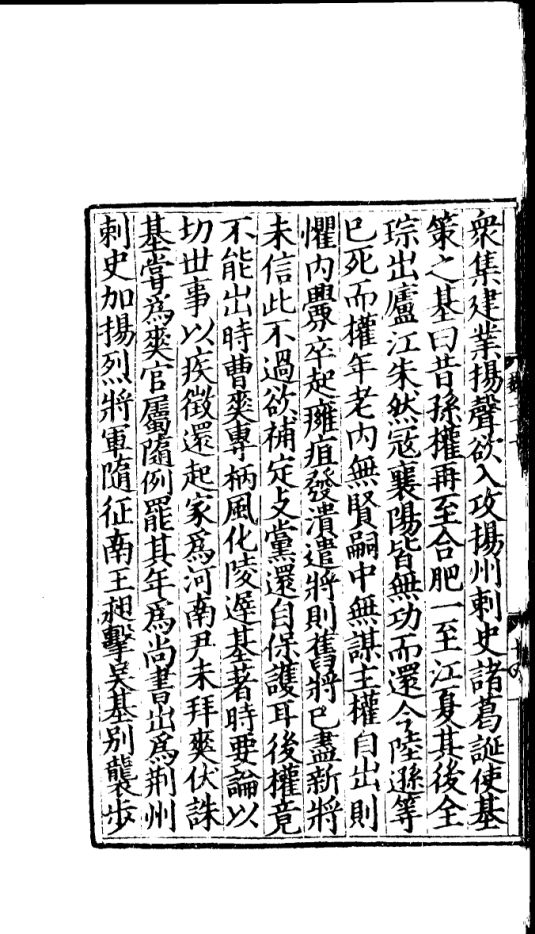 衆集建業揚聲欲入攻揚州刺史諸葛誕使基
策之基曰昔孫權再至合肥一至江夏其後全
琮出廬江朱然冦襄陽皆無功而還今陸遜等
已死而權年老内無賢嗣中無謀主權自出則
懼内釁卒起癰疽發潰遣將則舊將已盡新將
未信此不過欲補定支黨還自保護耳後權竟
不能出時曹爽專柄風化陵遲基著時要論以
切世事以疾徵還起家爲河南尹未拜爽伏誅
基嘗爲爽官屬隨例罷其年爲尚書出爲荆州
刺史加揚烈將軍隨征南王昶擊吴基别襲步